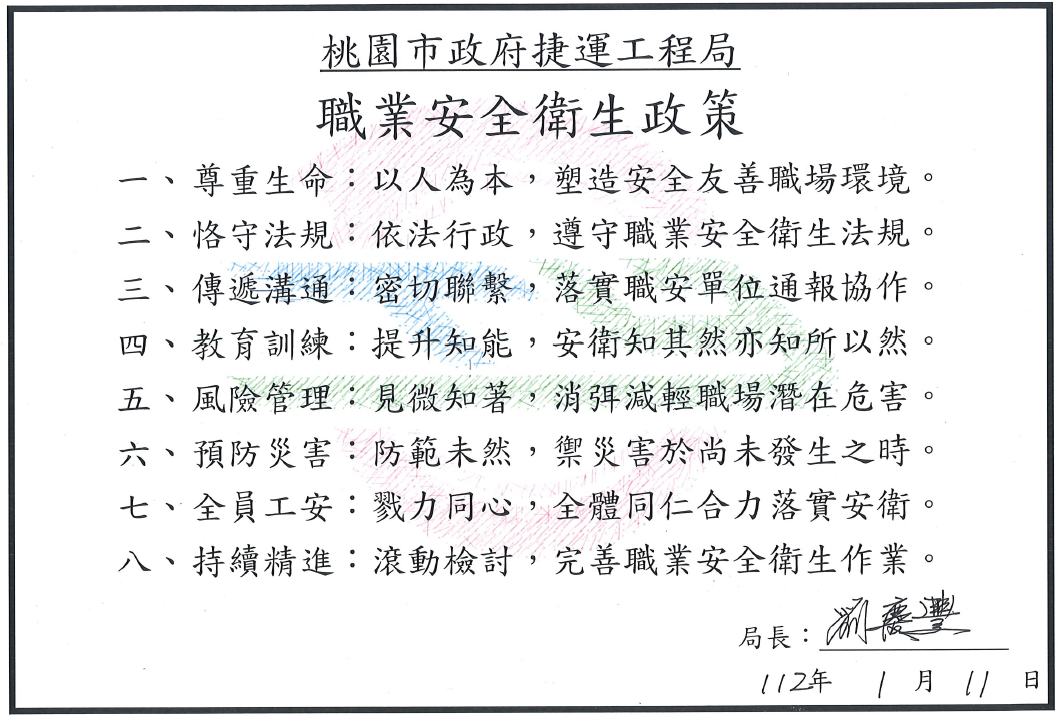 桃園市政府捷運工程局
職業安全衛生政策
一、尊重生命：以人為本，塑造安全友善職場環境。
二、恪守法規：依法行政，遵守職業安全衛生法規。
三、傳遞溝通：密切聯繫，落實職安單位通報協作。
四、教育訓練：提升知能，安衛知其然亦知所以然。
五、風險管理：見微知著，消弭減輕職場潛在危害。
六、預防災害：防範未然，禦災害於尚未發生之時。
七、全員工安：戮力同心，全體同仁合力落實安衛。
八、持續精進：滾動檢討，完善職業安全衛生作業。
局長：劉慶豐
112年 1 月 11 日